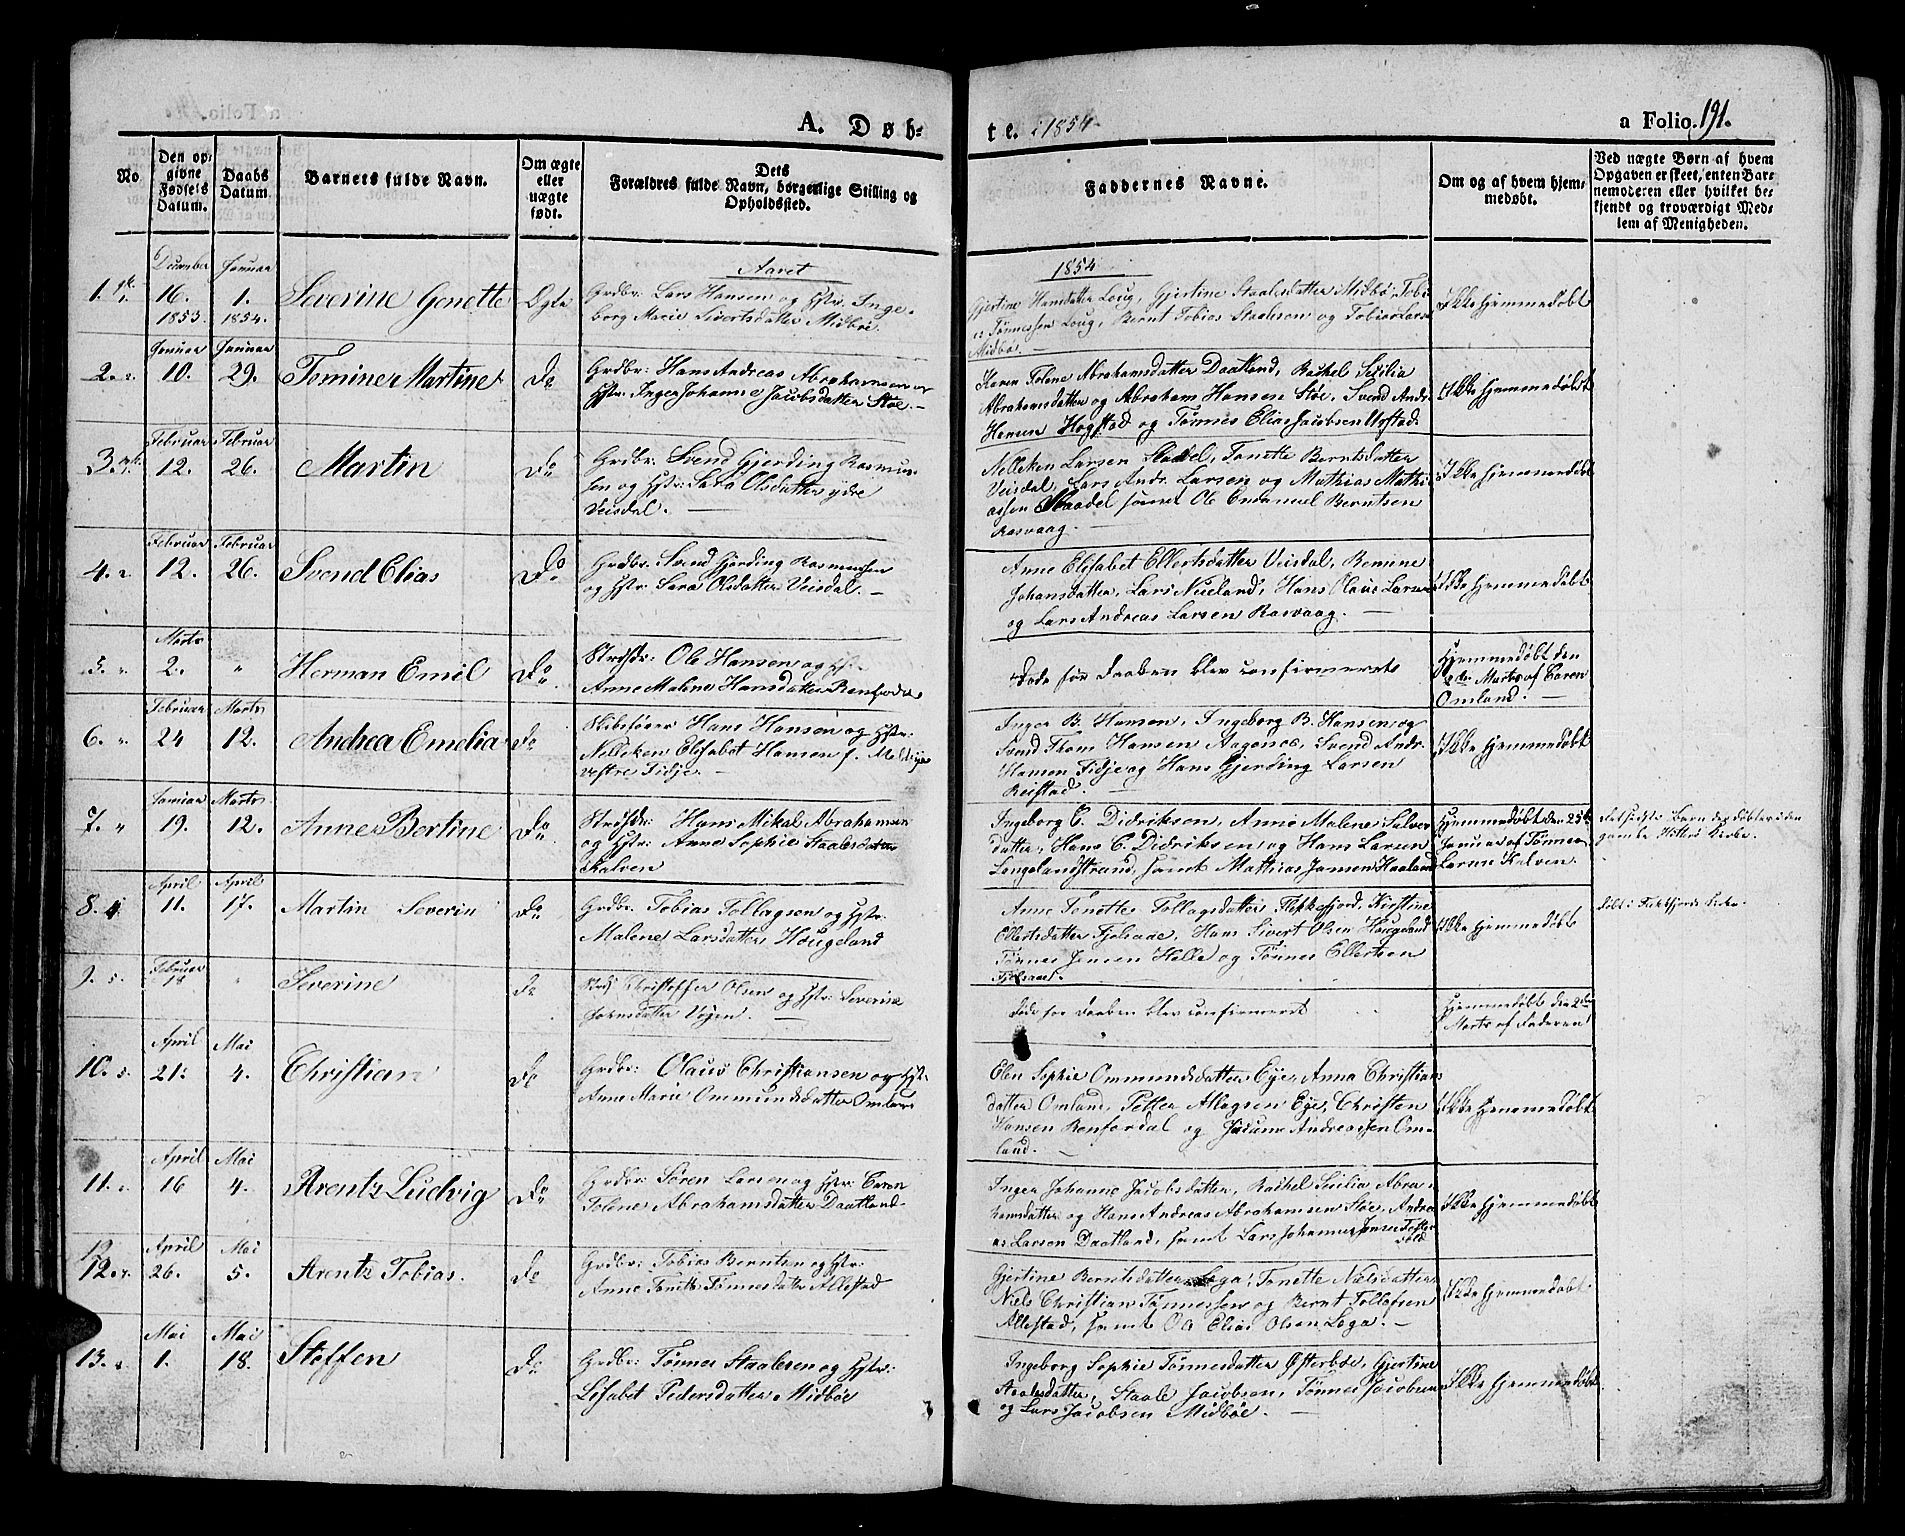 A. Døb-
te. i 1854.
a Folio. 191.
No.
Den op-
givne
Fødsels
Datum.
Daabs
Datum.
Barnets fulde Navn.
Om ægte
eller
uægte
født.
Dets
Forældres fulde Navn, borgerlige Stilling og
Opholdssted.
Faddernes Navne.
Om og af hvem hjem-
medøbt.
Ved uægte Børn af hvem
Opgaven er skeet, enten Bar-
nemoderen eller hvilket be-
kjendt og troværdigt Med-
lem af Menigheden.
Aaret
1854
1.
December
16.
1853.
Januar
1.
1854.
Severine Gonette
Egte
Grdbr: Lars Hansen og Hstr: Inge-
borg Marie Sivertsdatter Midbøe.
Gjertine Hansdatter Loug, Gjertine Staalesdatter Midbø, Tobi-
as Tønnessen Loug, Bernt Tobias Staalesen og Tobias Larsen
Midbø.
Ikke hjemmedøbt
2.
Januar
10.
Januar
29.
Tomine Martine
Do
Grdbr: Hans Andreas Abrahamsen og
Hstr: Inger Johanne Jacobsdatter Støe.
Karen Tolene Abrahamsdatter Daatland, Rachel Secilia
Abrahamsdatter og Abraham Hansen Støe, Svend Andr.
Hansen Hogstad og Tønnes Elias Jacobsen
Ikke hjemmedøbt
3.
Februar
12.
Februar
26.
Martin
Do
Grdbr: Svend Gjerding Rasmus-
sen og Hstr: Sara Olsdatter ydre
Veisdal.
Nelleken Larsen Staadel, Tonette Berntsdatter
Veisdal, Lars Andr. Larsen og Mathias Mathi-
assen Staadel samt Ole Emanuel Berntsen
Rasvaag.
Ikke hjemmedøbt
4.
Februar
12.
Februar
26.
Svend Elias
Do
Grdbr: Svend Gjerding Rasmussen
og Hstr: Sara Olsdatter Veisdal.
Anne Elisabet Ellertsdatter Veisdal, Bemine
Johansdatter, Lars Nueland, Hans Olaus Larsen
og Lars Andreas Larsen Rasvaag.
Ikke hjemmedøbt
5.
Marts
2.
"
Herman Emil
Do
Strdsdr: Ole Hansen og Hstr:
Anne Malene Hansdatter Renfordal
Døde før Daaben blev confirmeret
Hjemmedøbt den
2den Marts af Caren
Omland.
6.
Februar
24
Marts
12.
Andrea Emelia
Do
Skibsfører Hans Hansen og Hstr:
Nelleken Elisabet Hansen f.
vestre Fidje.
Inger B. Hansen, Ingeborg B. Hansen og
Svend Thom Hansen Aagenæs, Svend Andr.
Hansen Fidje og Hans Gjerding Larsen
Reistad.
Ikke hjemmedøbt
7.
Januar
19.
Marts
12.
Anne Bertine
Do
Strdsdr: Hans Mikal Abrahamsen
og Hstr: Anne Sophie Staalesdatter
Kalven
Ingeborg E. Didriksen, Anne Malene Salves-
datter, Hans E. Didriksen og Hans Larsen
Longelandstrand, samt Mathias Jansen Haaland
Hjemmedøbt den 25de
Januar af Tønnes
Larsen Kalven.
det sidste Barn der døbtes i den
gamle Kirke.
8.
April
11.
April
17.
Martin Severin
Do
Grdbr: Tobias Tollagsen og Hstr:
Malene Larsdatter Hougeland
Anne Tonette Tollagsdatter Flekkefjord, Kirstine
Ellertsdatter Fjelsaae, Hans Sivert Olsen Hougeland
Tønnes Jensen Helle og Tønnes Ellertsen
Fjelsaae.
Ikke hjemmedøbt
døbt i Kirke.
9.
Februar
18
"
Severine
Do
Strds. Christoffer Olsen og Hstr: Severine
Vogen.
Døde før Daaben blev confirmeret
Hjemmedøbt den 2den
Marts af Faderen
10.
April
21.
Mai
4.
Christian
Do
Grdbr: Olaus Christiansen og Hstr:
Anne Marie Ommundsdatter Omland
Elen Sophie Ommundsdatter Eye, Anna Christians-
datter Omland, Petter Atlagsen Eye, Christen
Hansen Renfordal og Andreassen Om-
land.
Ikke hjemmedøbt
11.
April
16
Mai
4.
Arentz Ludvig
Do
Grdbr: Søren Larsen og Hstr: Caren
Tolene Abrahamsdatter Daatland.
Inger Johanne Jacobsdatter, Rachel Secilia Abra-
hamsdatter og Hans Andreas Abrahamsen Støe, Andre-
as Larsen Daatland, samt Lars Johannes
Ikke hjemmedøbt
12
12.
April
26.
Mai
5.
Arentz Tobias.
Do
Grdbr: Tobias Berntsen og Hstr:
Anne Tonette Tønnesdatter Allestad
Gjertine Berntsdatter Lega, Tonette Nielsdatter,
Niels Christian Tønnessen og Bernt Tollofsen
Allestad, samt Ole Elias Olsen Lega.
Ikke hjemmedøbt.
13.
Mai
1.
Mai
18.
Steffen
Do
Grdbr: Tønnes Staalesen og Hstr:
Lisabet Pedersdatter Midbøe
Ingeborg Sophie Tønnesdatter Østerbøe, Gjertine
Staalesdatter, Staale Jacobsen, Tønnes Jacobsen
og Lars Jacobsen Midbøe.
Ikke hjemmedøbt